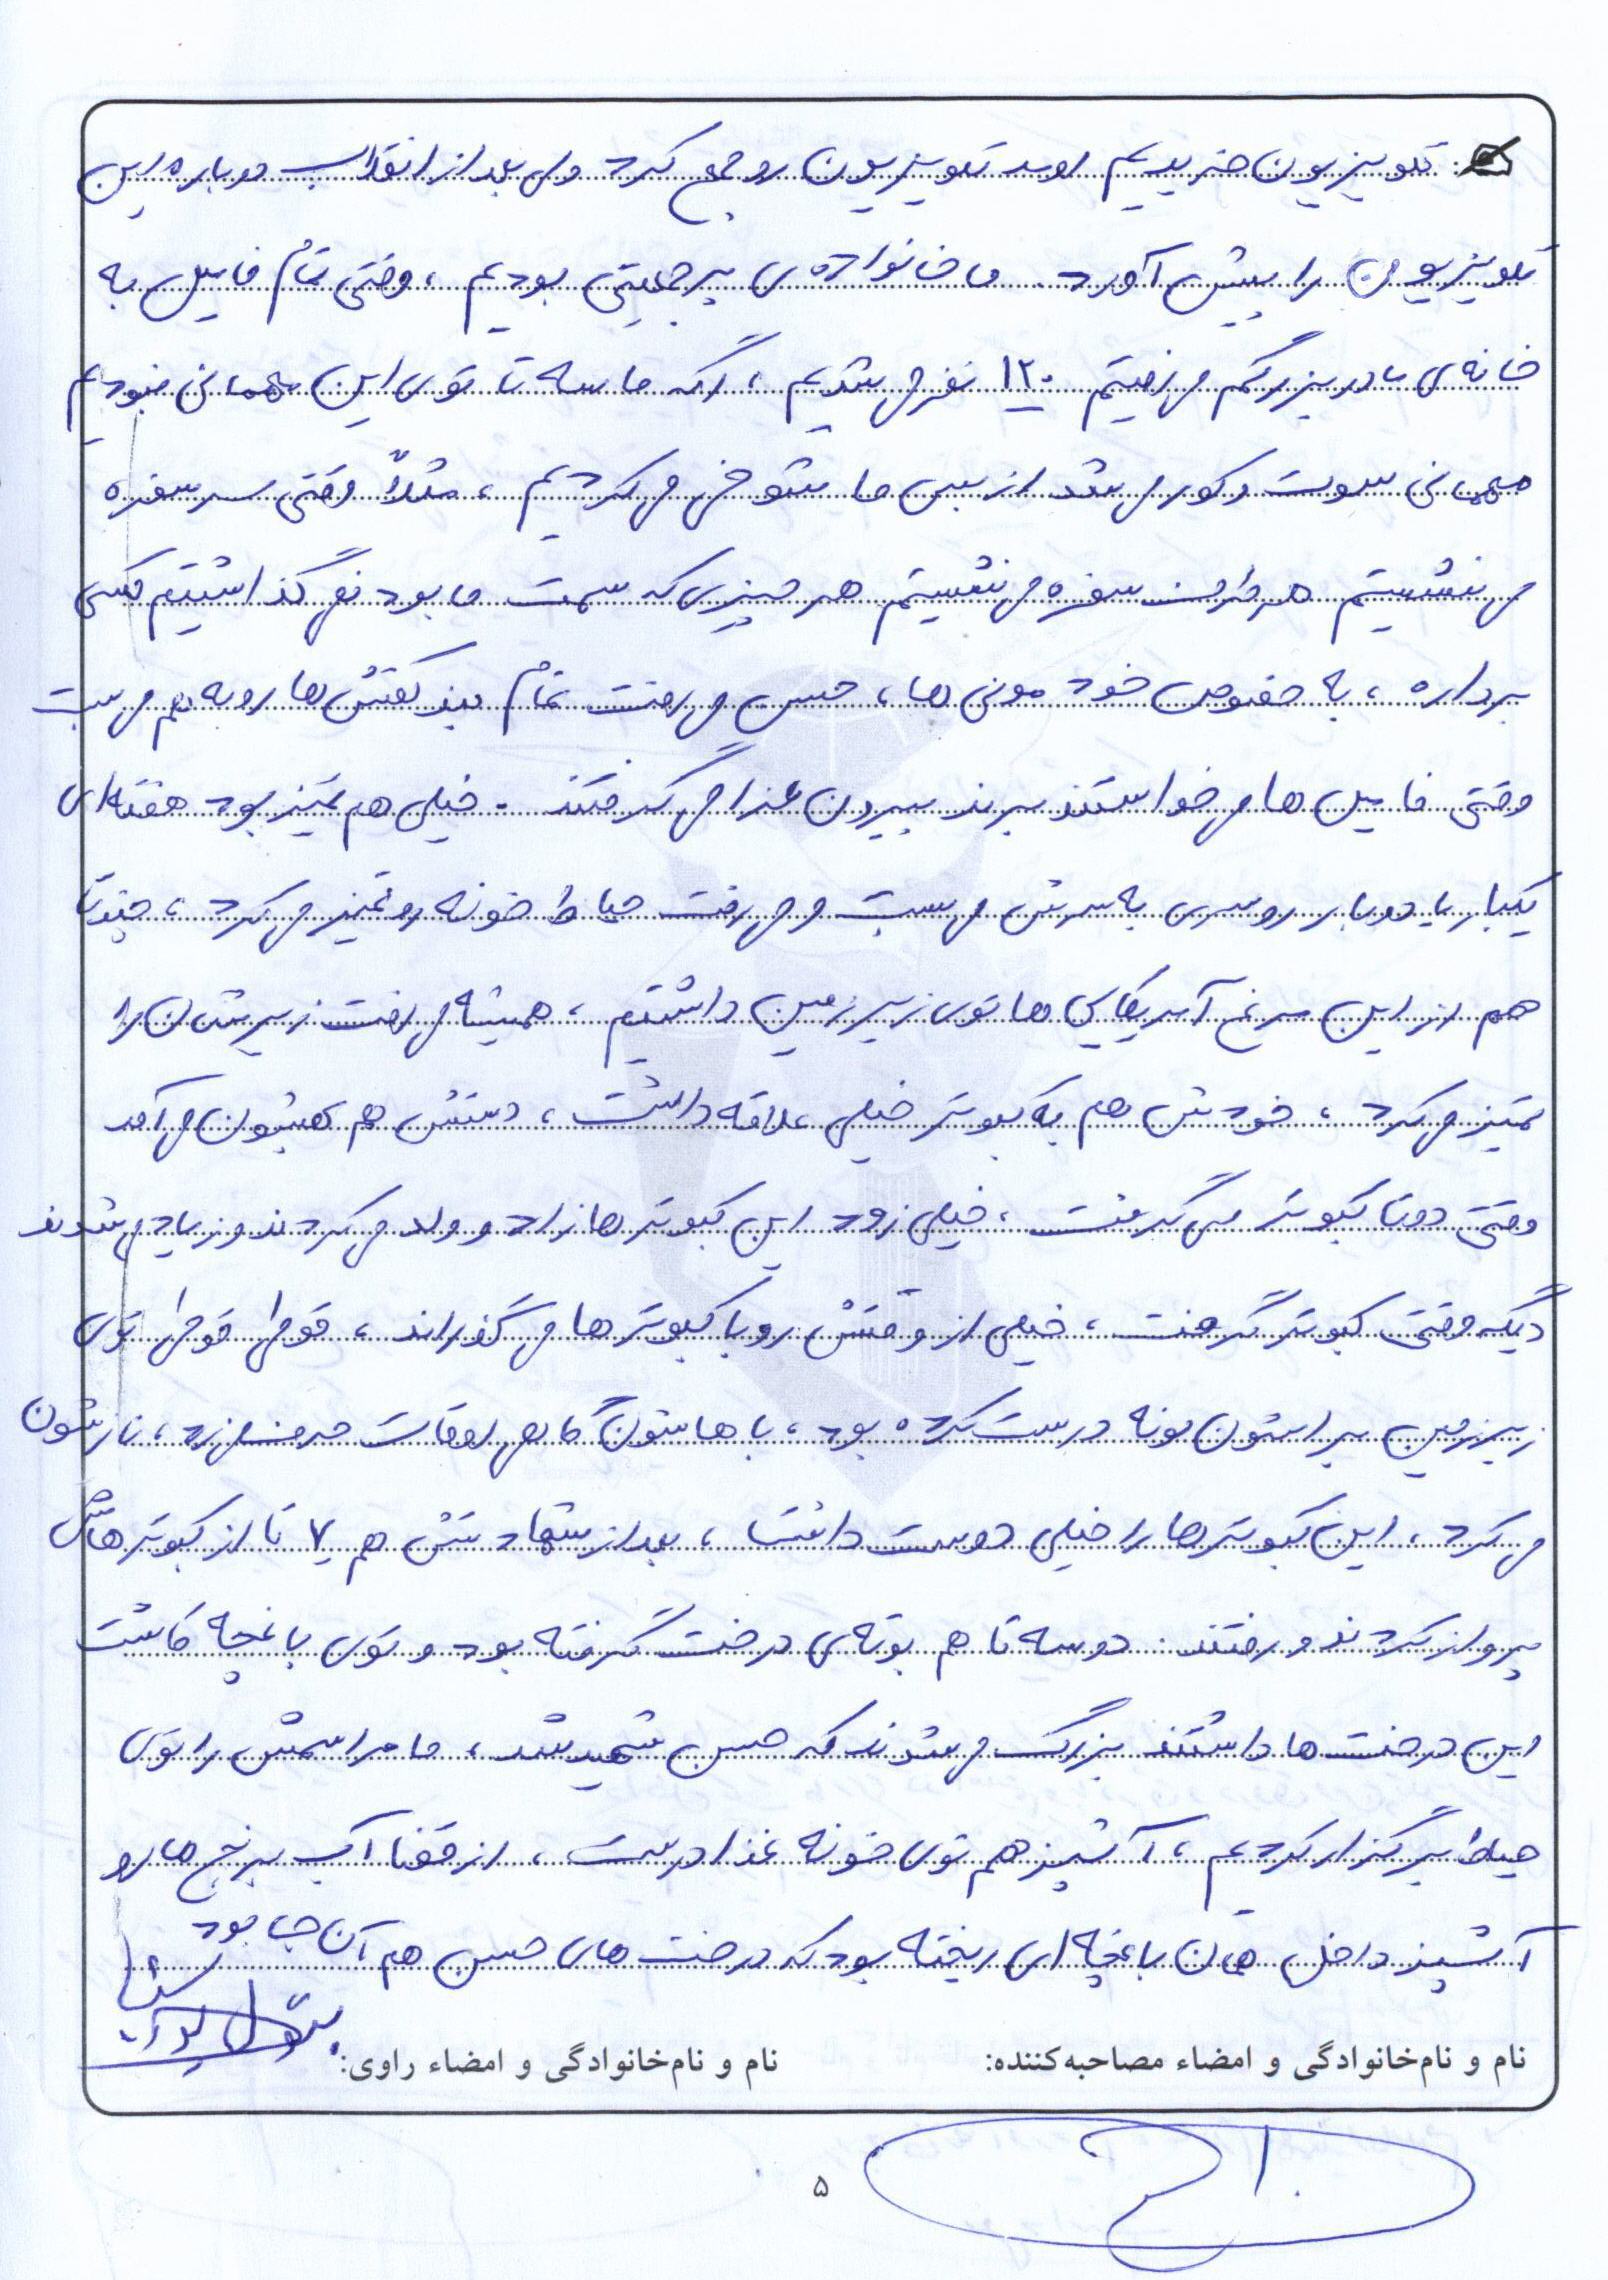 تلویزیون خریدیم اومد تلویزیون رو جمع کرد ولی بعد از انقلاب دوباره این
تلویزیون را پیش آورد. ما خانواده‌ی پرجمعیتی بودیم، وقتی تمام فامیل به
خانه‌ی مادربزرگم می‌رفتیم ۱۲۰ نفر می‌شدیم، اگه ما سه تا توی این مهمانی نبودیم
مهمانی سوت و کور می‌شد از بس ما شوخی می‌کردیم، مثلاً وقتی سر سفره
می‌نشستیم هر طرف سفره می‌نشستیم هر چیزی که سمت ما بود نمی‌گذاشتیم کسی
برداره، به خصوص خودمونی‌ها، حسن می‌رفت تمام بند کفش‌ها رو به هم می‌بست
وقتی فامیل‌ها می‌خواستند برند بیرون عزا می‌گرفتند. خیلی هم تمیز بود هفته‌ای
یکبار یا دوبار روسری به سرش می‌بست و می‌رفت حیاط خونه رو تمیز می‌کرد، چندتا
هم از این مرغ آمریکایی‌ها توی زیرزمین داشتیم، همیشه می‌رفت زیرشان را
تمیز می‌کرد، خودش هم به کبوتر خیلی علاقه داشت، دستش هم بهشون می‌آمد
وقتی دوتا کبوتر می‌گرفت، خیلی زود این کبوترها زاد و ولد می‌کردند و زیاد می‌شدند
دیگه وقتی کبوتر گرفت، خیلی از وقتش رو با کبوترها می‌گذراند، توی
زیرزمین براشون لونه درست کرده بود، باهاشون گاهی اوقات حرف می‌زد، نازشون
می‌کرد، این کبوترها را خیلی دوست داشت، بعد از شهادتش هم ۷ تا از کبوترهاش
پرواز کردند و رفتند. دو سه تا هم بوته‌ی درخت گرفته بود و توی باغچه کاشت
این درخت‌ها داشتند بزرگ می‌شدند که حسن شهید شد، ما مراسمش را توی
حیاط برگزار کردیم، آشپز هم توی خونه غذا درست، از قضا آب برنج‌ها رو
آشپز داخل همان باغچه‌ای ریخته بود که درخت‌های حسن هم آن جا بود
نام و نام‌خانوادگی و امضاء مصاحبه‌کننده: نام و نام‌خانوادگی و امضاء راوی:
۵